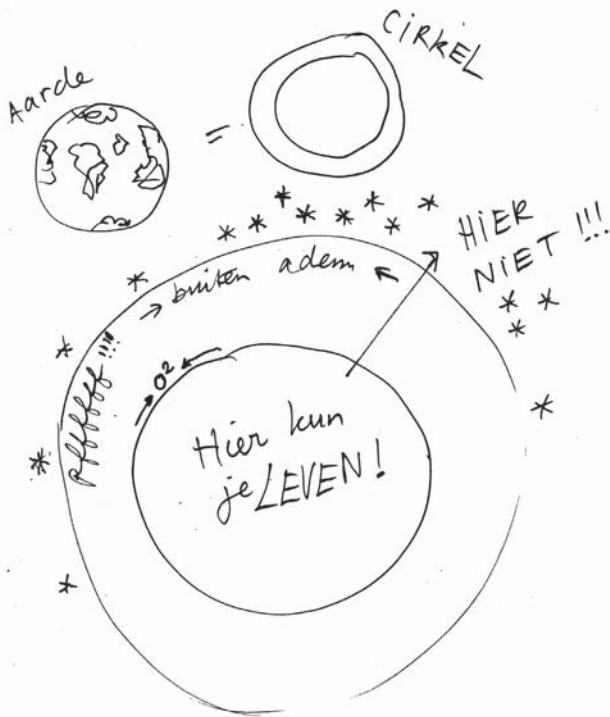 Aarde
=
CIRKEL
HIER
NIET!!!
→ buiten adem ←
pfffffff!!!!
→ O² ←
Hier kun
je LEVEN!